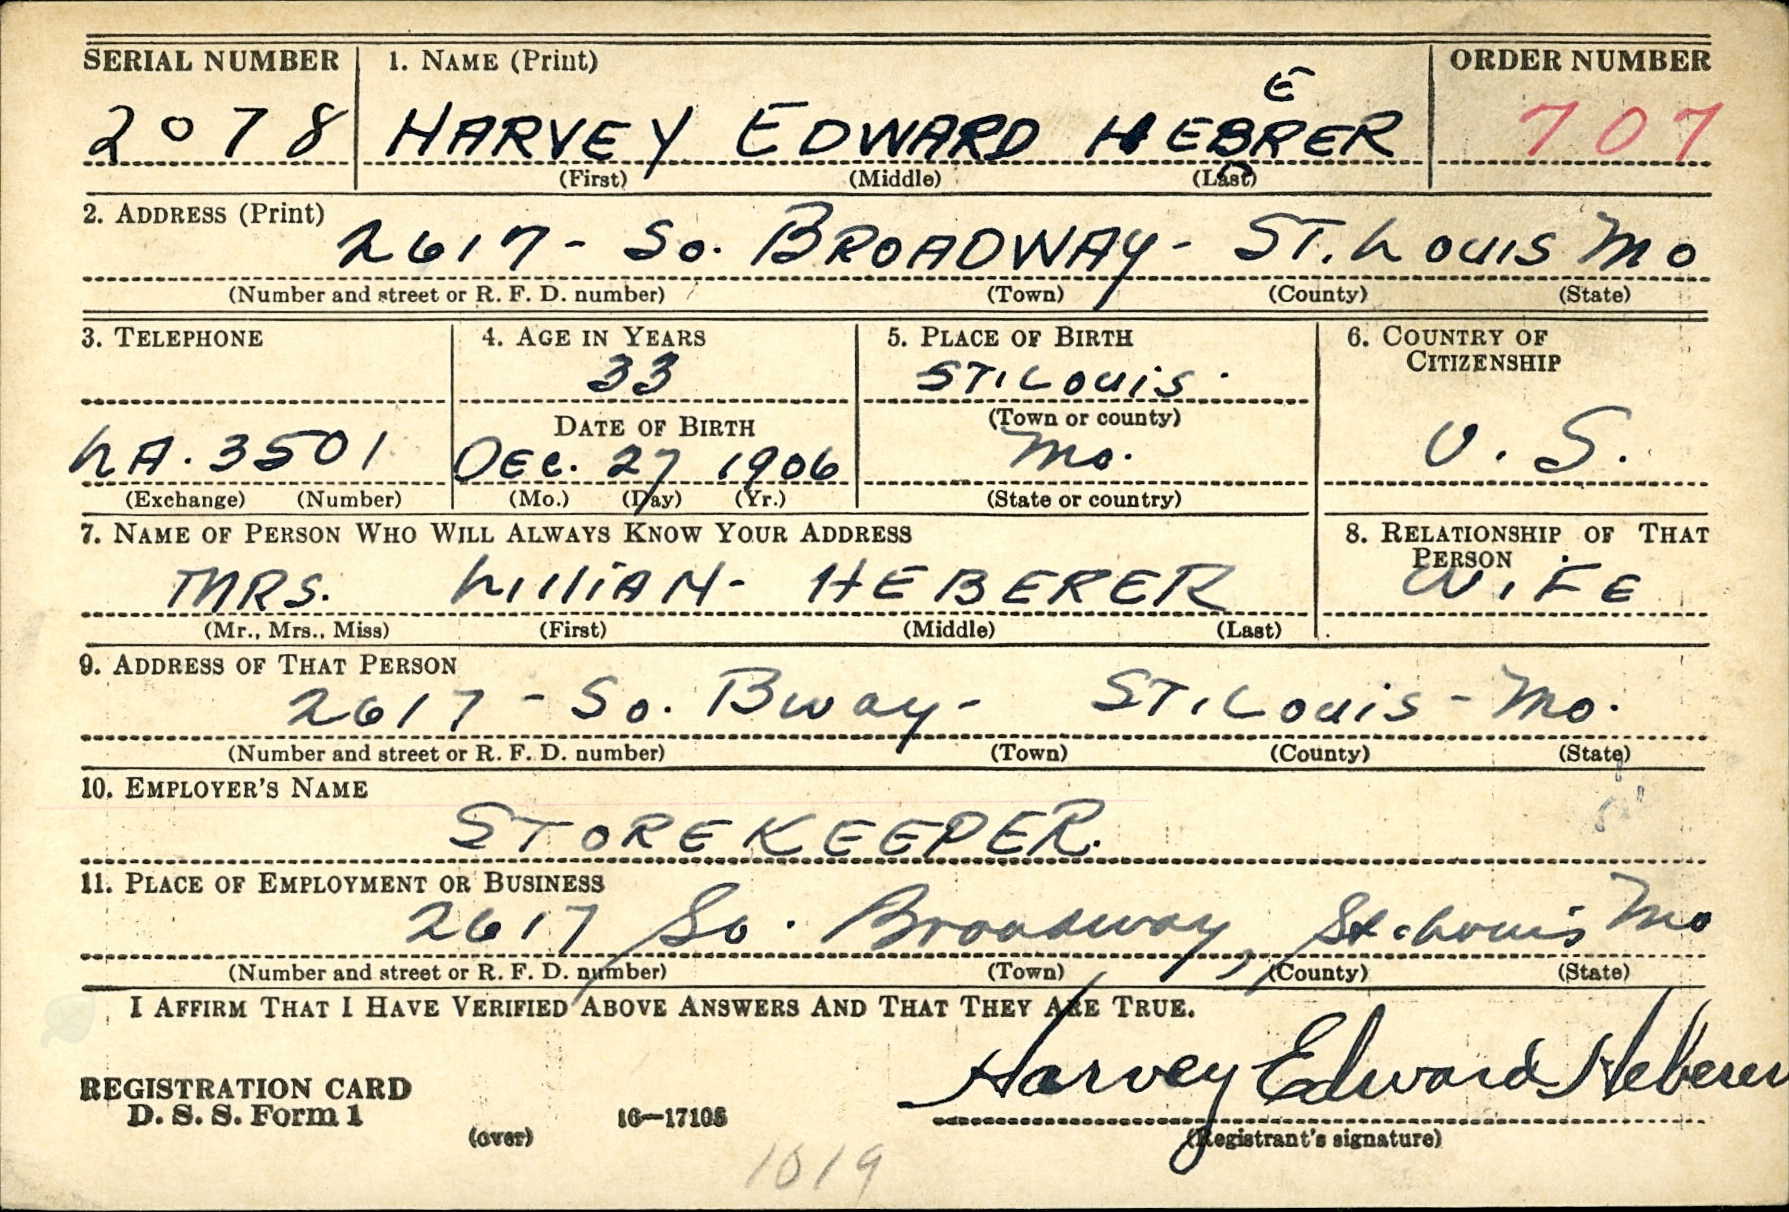 SERIAL NUMBER 1. NAME (Print) ORDER NUMBER
E
2078 HARVEY EDWARD HEBRER 707
(First) (Middle) (Last)
2. ADDRESS (Print)
2617 - So. BROADWAY - ST. LOUIS MO
(Number and street or R. F. D. number) (Town) (County) (State)
3. TELEPHONE 4. AGE IN YEARS 5. PLACE OF BIRTH 6. COUNTRY OF CITIZENSHIP
33 ST. LOUIS.
DATE OF BIRTH (Town or county)
LA. 3501 DEC. 27 1906 Mo. U. S.
(Exchange) (Number) (Mo.) (Day) (Yr.) (State or country)
7. NAME OF PERSON WHO WILL ALWAYS KNOW YOUR ADDRESS 8. RELATIONSHIP OF THAT PERSON
MRS. LILLIAN - HEBERER WIFE
(Mr., Mrs., Miss) (First) (Middle) (Last)
9. ADDRESS OF THAT PERSON
2617 - So. Bway - ST. Louis - Mo.
(Number and street or R. F. D. number) (Town) (County) (State)
10. EMPLOYER'S NAME
STOREKEEPER.
11. PLACE OF EMPLOYMENT OR BUSINESS
2617 So. Broadway, St. Louis Mo
(Number and street or R. F. D. number) (Town) (County) (State)
I AFFIRM THAT I HAVE VERIFIED ABOVE ANSWERS AND THAT THEY ARE TRUE.
Harvey Edward Heberer
REGISTRATION CARD
D. S. S. Form 1 16—17105
(over) (Registrant's signature)
1019